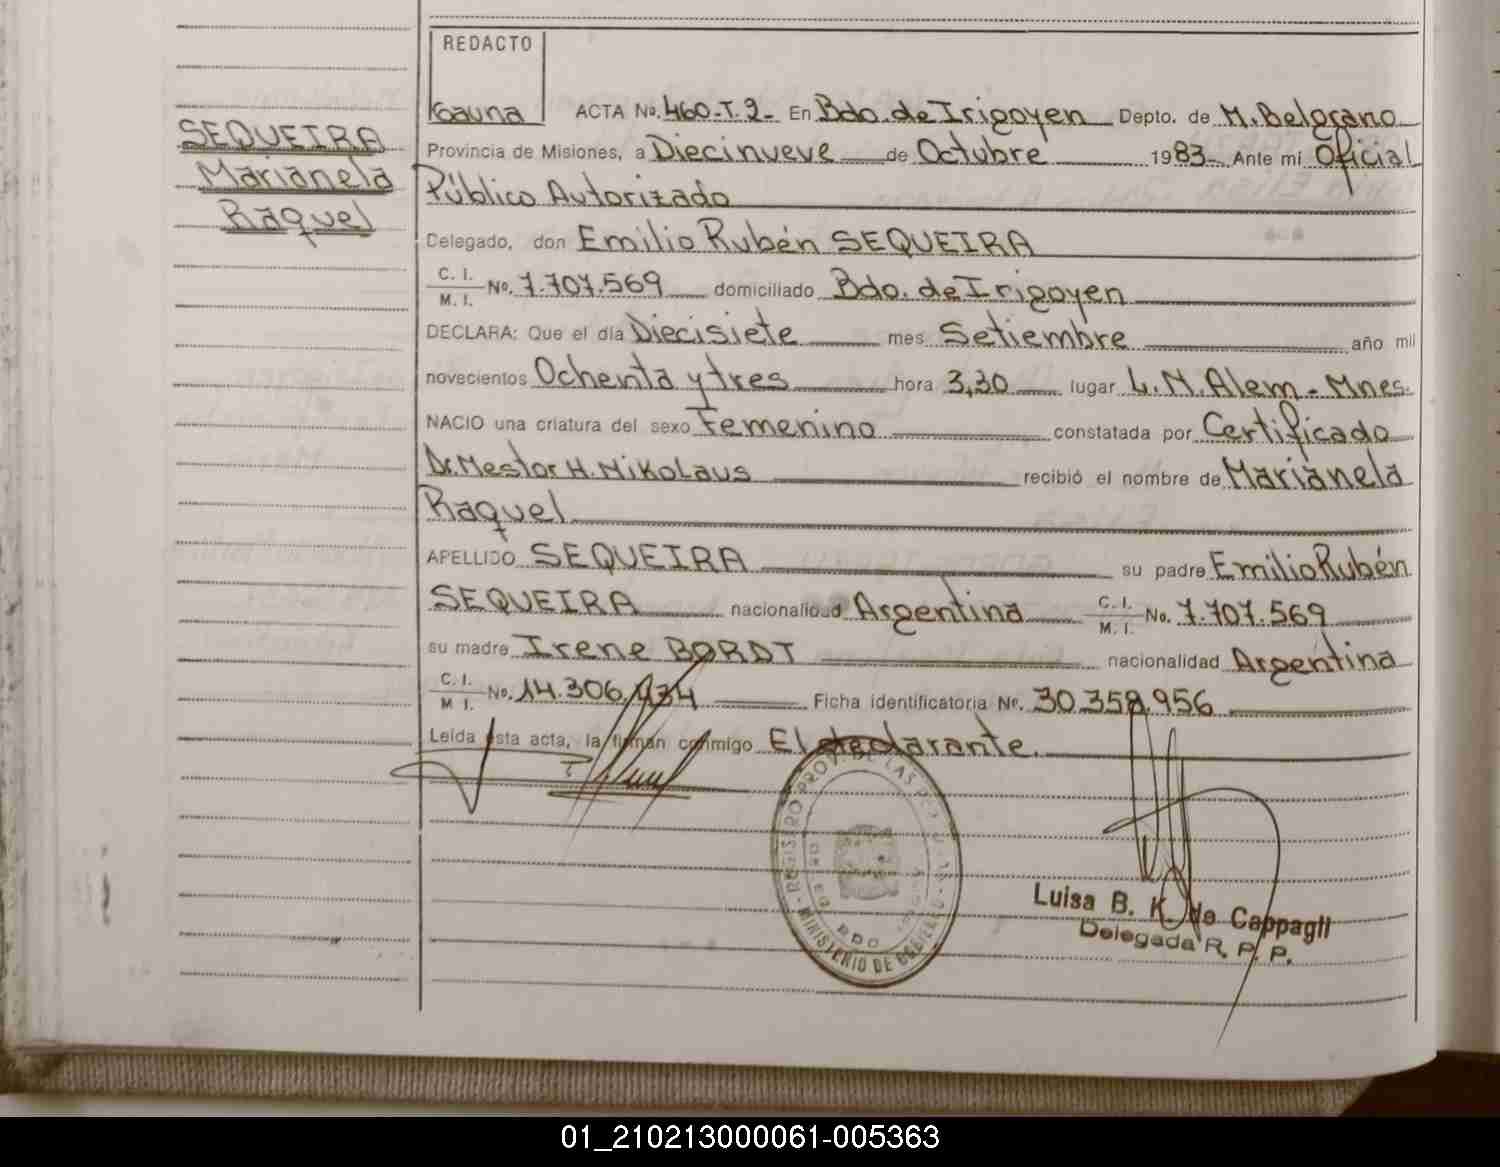 REDACTO
Gauna
ACTA No. 460-T.2- En Bdo. de Irigoyen Depto. de M. Belgrano
SEQUEIRA
Marianela
Raquel
Provincia de Misiones, a Diecinueve de Octubre 1983- Ante mi Oficial
Público Autorizado
Delegado, don Emilio Rubén SEQUEIRA
C. I.
M. I. No. 7.707.569 domiciliado Bdo. de Irigoyen
DECLARA: Que el día Diecisiete mes Setiembre año mil
novecientos Ochenta y tres hora 3,30 lugar L.N.Alem - Mnes.
NACIO una criatura del sexo Femenino constatada por Certificado
Dr. Nestor H. Nikolaus recibió el nombre de Marianela
Raquel
APELLIDO SEQUEIRA su padre Emilio Rubén
SEQUEIRA nacionalidad Argentina C. I.
M. I. No. 7.707.569
su madre Irene BORDT nacionalidad Argentina
C. I.
M I. No. 14.306.934 Ficha identificatoria No. 30.358.956
Leída esta acta, la firman conmigo El declarante.
REGISTRO PROV. DE LAS
MINISTERIO DE GOBIERNO
BDO
Luisa B. K. de Cappagli
Delegada R. P. P.
01_210213000061-005363